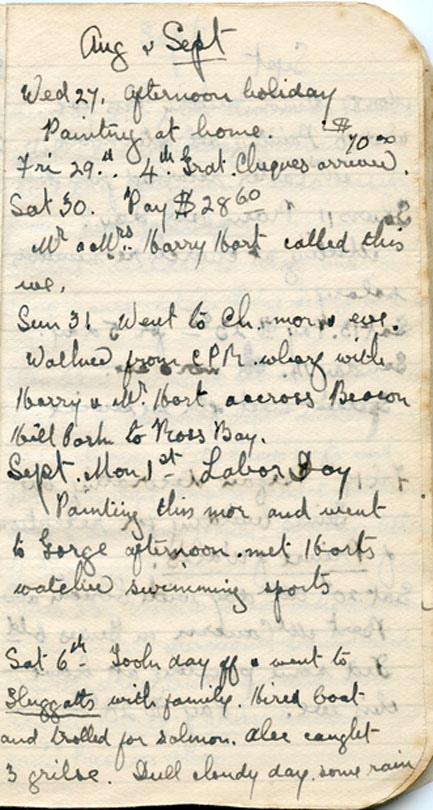 Aug & Sept
Wed 27. afternoon holiday
Painting at home. $70.00
Fri 29th. 4th Grat. Cheques arrived.
Sat 30. Pay $28.60
Mr and Mrs Harry Hart called this
eve.
Sun 31 Went to Ch. mor & eve.
Walked from C.P.R. wharf with
Harry & Mr. Hart accross Beacon
Hill Park to Ross Bay.
Sept. Mon 1st Labor Day
Painting this mor and went
to Gorge afternoon. met Harts
watched swimming sports
Sat 6th Took day off & went to
Sluggatts with family. Hired boat
and trolled for salmon. Alec caught
3 grilse. Dull cloudy day. some rain